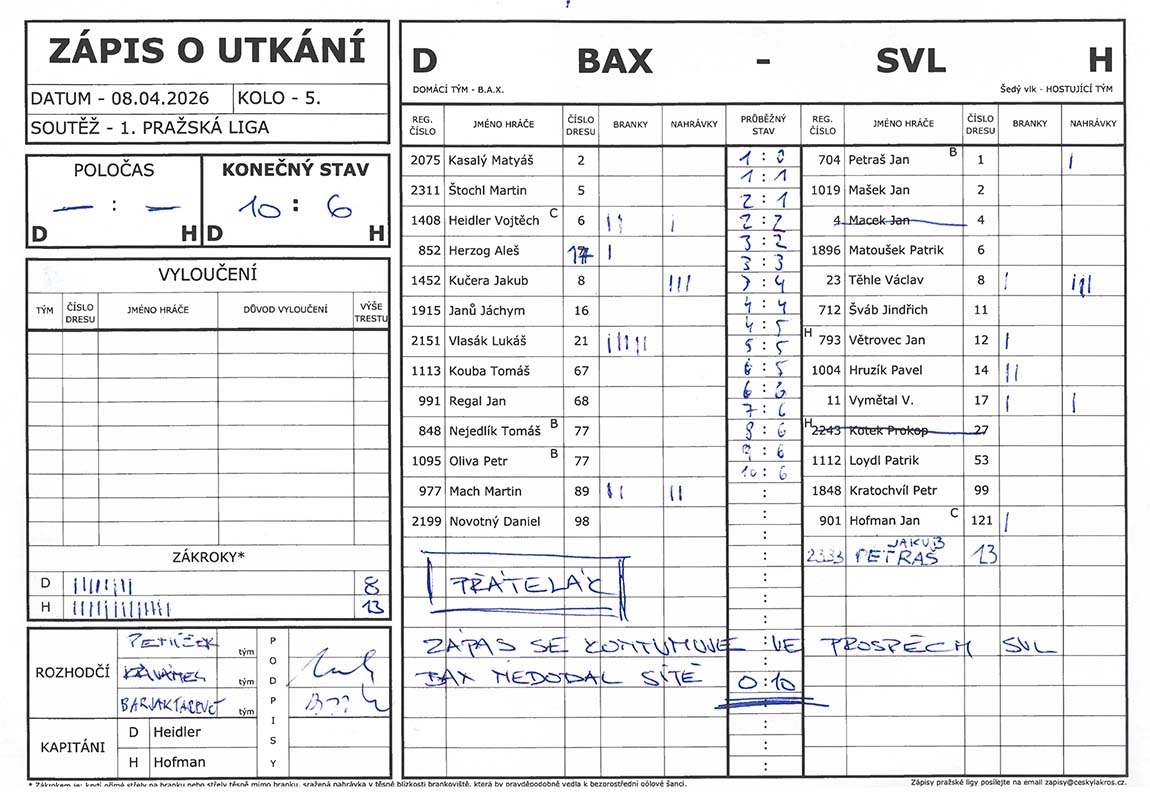 ZÁPIS O UTKÁNÍ
DATUM - 08.04.2026 KOLO - 5.
SOUTĚŽ - 1. PRAŽSKÁ LIGA
POLOČAS KONEČNÝ STAV
— : — 10 : 6
D H D H
VYLOUČENÍ
TÝM ČÍSLO DRESU JMÉNO HRÁČE DŮVOD VYLOUČENÍ VÝŠE TRESTU
ZÁKROKY*
D 8
H 13
ROZHODČÍ
tým
tým
tým
PODPISY
KAPITÁNI
D Heidler
H Hofman
D BAX - SVL H
DOMÁCÍ TÝM - B.A.X. Šedý vlk - HOSTUJÍCÍ TÝM
REG. ČÍSLO JMÉNO HRÁČE ČÍSLO DRESU BRANKY NAHRÁVKY PRŮBĚŽNÝ STAV REG. ČÍSLO JMÉNO HRÁČE ČÍSLO DRESU BRANKY NAHRÁVKY
2075 Kasalý Matyáš 2
2311 Štochl Martin 5
1408 Heidler Vojtěch C 6 || |
852 Herzog Aleš |
1452 Kučera Jakub 8 |||
1915 Janů Jáchym 16
2151 Vlasák Lukáš 21 |||||
1113 Kouba Tomáš 67
991 Regal Jan 68
848 Nejedlík Tomáš B 77
1095 Oliva Petr B 77
977 Mach Martin 89 || ||
2199 Novotný Daniel 98
1 : 0
1 : 1
2 : 1
2 : 2
3 : 2
3 : 3
3 : 4
4 : 4
4 : 5
5 : 5
6 : 5
6 : 6
7 : 6
8 : 6
9 : 6
10 : 6
704 Petraš Jan B 1 |
1019 Mašek Jan 2
4 Macek Jan 4
1896 Matoušek Patrik 6
23 Těhle Václav 8 | |||
712 Šváb Jindřich 11
H 793 Větrovec Jan 12 |
1004 Hruzík Pavel 14 ||
11 Vymětal V. 17 | |
H 2243 Kotek Prokop 27
1112 Loydl Patrik 53
1848 Kratochvíl Petr 99
901 Hofman Jan C 121 |
2333 PETRAŠ JAKUB 13
PŘÁTELÁK
ZÁPAS SE KONTUMUJE VE PROSPĚCH SVL
BAX NEDODAL SÍTĚ 0:10
* Zákrokem je: krytí přímé střely na branku nebo střely těsně mimo branku, sražená nahrávka v těsné blízkosti brankoviště, která by pravděpodobně vedla k bezprostřední gólové šanci.
Zápisy pražské ligy posílejte na email zapisy@ceskylakros.cz.